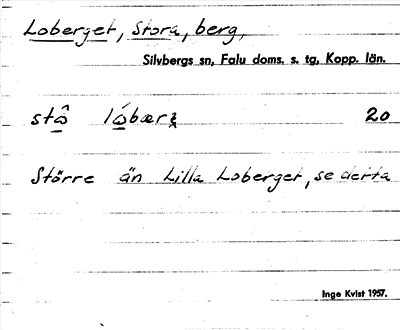 Loberget, Stora, berg,
Silvbergs sn, Falu doms. s. tg, Kopp. län.
20
Större än Lilla Loberget, se detta
Inge Kvist 1957.